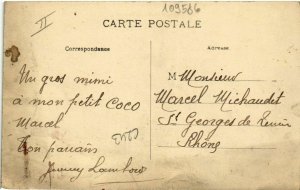 109566
II
CARTE POSTALE
Correspondance
Adresse
Un gros mimi
à mon petit Coco
Marcel
Ton parrain
M Monsieur
Marcel Michaudet
St Georges de Reneins
Rhône